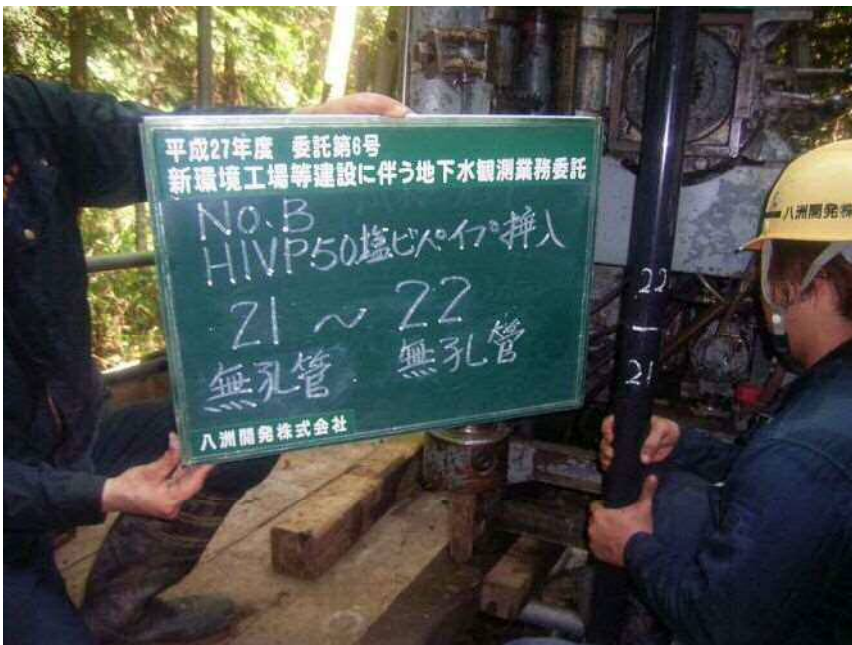 平成27年度 委託第6号
新環境工場等建設に伴う地下水観測業務委託
No.B
HIVP50塩ビパイプ挿入
21 ～ 22
無孔管 無孔管
八洲開発株式会社
22
—
21
八洲開発株